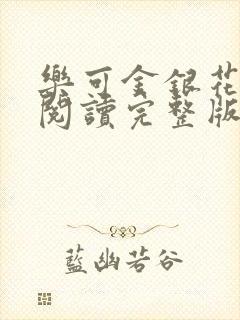 樂可金銀花
閱讀完整版
藍幽若谷